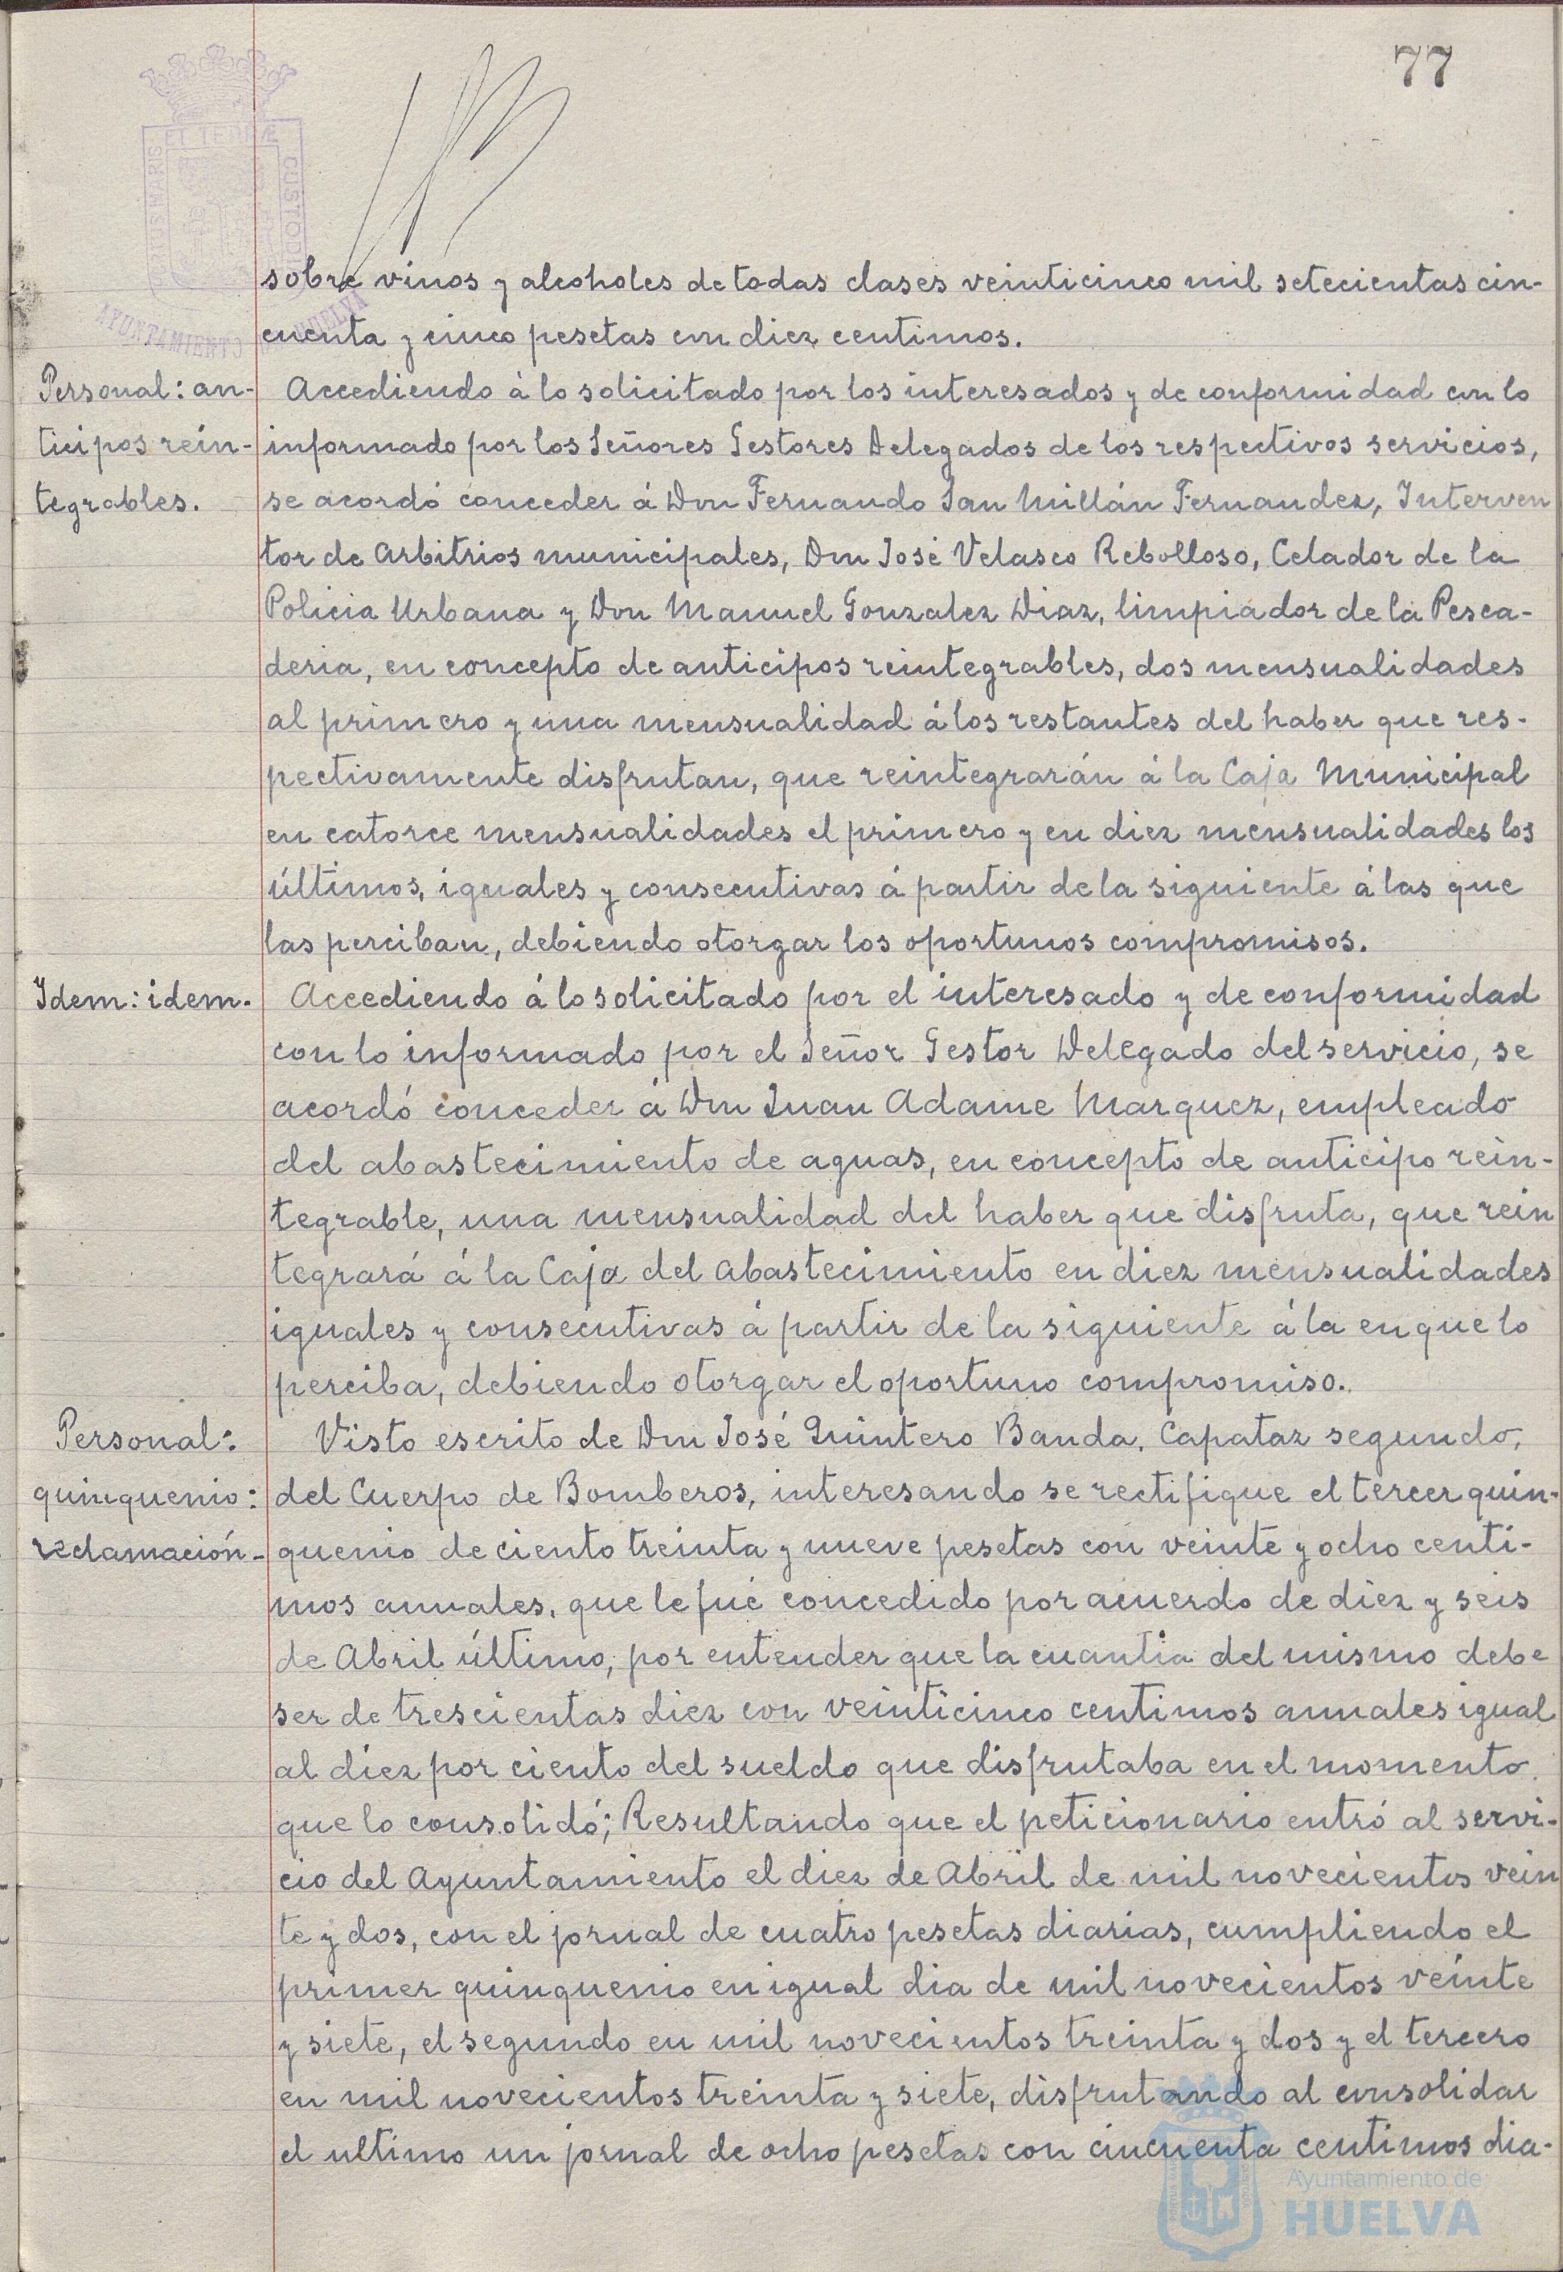 77
sobre vinos y alcoholes de todas clases veinticinco mil setecientas cin-
cuenta y cinco pesetas con diez centimos.
Personal: an-
ticipos rein-
tegrables.
Accediendo à lo solicitado por los interesados y de conformidad con lo
informado por los Señores Gestores Delegados de los respectivos servicios,
se acordó conceder á Don Fernando San Millán Fernandez, Interven
tor de Arbitrios municipales, Don José Velasco Rebolloso, Celador de la
Policia Urbana y Don Manuel Gonzalez Diaz, limpiador de la Pesca-
deria, en concepto de anticipos reintegrables, dos mensualidades
al primero y una mensualidad á los restantes del haber que res-
pectivamente disfrutan, que reintegrarán á la Caja Municipal
en catorce mensualidades el primero y en diez mensualidades los
últimos, iguales y consecutivas á partir de la siguiente á las que
las perciban, debiendo otorgar los oportunos compromisos.
Idem: idem.
Accediendo á lo solicitado por el interesado y de conformidad
con lo informado por el Señor Gestor Delegado del servicio, se
acordó conceder á Don Juan Adame Marquez, empleado
del abastecimiento de aguas, en concepto de anticipo rein-
tegrable, una mensualidad del haber que disfruta, que rein
tegrará á la Caja del Abastecimiento en diez mensualidades
iguales y consecutivas á partir de la siguiente á la en que lo
perciba, debiendo otorgar el oportuno compromiso.
Personal:
quinquenio:
reclamación-
Visto escrito de Don José Quintero Banda, Capataz segundo,
del Cuerpo de Bomberos, interesando se rectifique el tercer quin-
quenio de ciento treinta y nueve pesetas con veinte y ocho centi-
mos anuales, que le fué concedido por acuerdo de diez y seis
de Abril último, por entender que la cuantia del mismo debe
ser de trescientas diez con veinticinco centimos anuales igual
al diez por ciento del sueldo que disfrutaba en el momento
que lo consolidó; Resultando que el peticionario entró al servi-
cio del Ayuntamiento el diez de Abril de mil novecientos vein
te y dos, con el jornal de cuatro pesetas diarias, cumpliendo el
primer quinquenio en igual dia de mil novecientos veinte
y siete, el segundo en mil novecientos treinta y dos y el tercero
en mil novecientos treinta y siete, disfrutando al consolidar
el ultimo un jornal de ocho pesetas con cincuenta centimos dia-
Ayuntamiento de
HUELVA